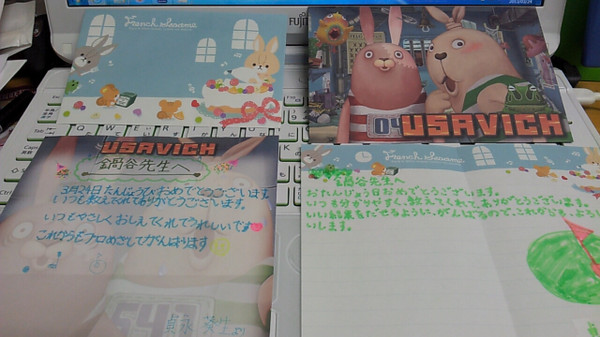 French
FUJI
USAVICH
USAVICH
鍋谷先生へ
3月24日たんじょうびおめでとうございます。
いつも教えてくれてありがとうございます。
いつもやさしくおしえてくれてうれしいです
これからもプロめざしてがんばります
より
French
鍋谷先生へ
おたんじょう日おめでとうございます。
いつも分かりやすく、教えてくれて、ありがとうございます。
いい結果をだせるように、がんばるので、これからも、よろし
いします。